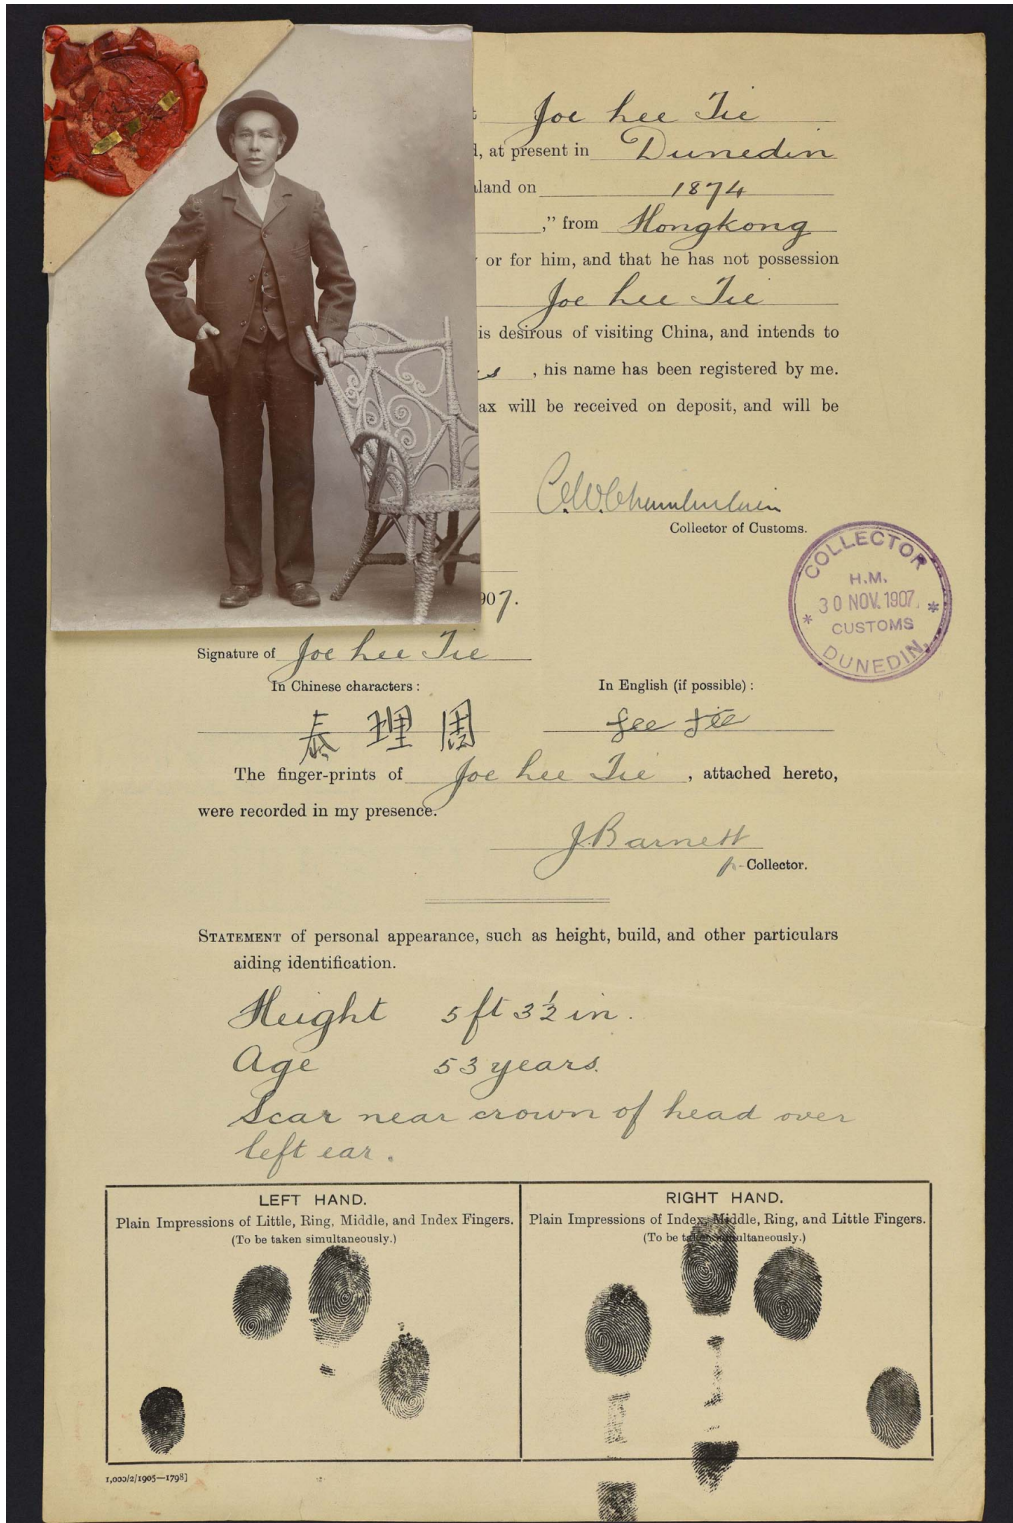 Joe Lee Tie
, at present in Dunedin
land on 1874
," from Hongkong
or for him, and that he has not possession
Joe Lee Tie
is desirous of visiting China, and intends to
, his name has been registered by me.
ax will be received on deposit, and will be
C.W. Chamberlain
Collector of Customs.
COLLECTOR
H.M.
30 NOV. 1907
CUSTOMS
DUNEDIN.
907.
Signature of Joe Lee Tie
In Chinese characters :
In English (if possible) :
泰 理 周
Lee Tee
The finger-prints of Joe Lee Tie , attached hereto,
were recorded in my presence.
J. Barnett
p- Collector.
STATEMENT of personal appearance, such as height, build, and other particulars
aiding identification.
Height 5 ft 3½ in.
Age 53 years.
Scar near crown of head over
left ear.
LEFT HAND.
Plain Impressions of Little, Ring, Middle, and Index Fingers.
(To be taken simultaneously.)
RIGHT HAND.
Plain Impressions of Index, Middle, Ring, and Little Fingers.
(To be taken simultaneously.)
1,000/2/1905—1798]